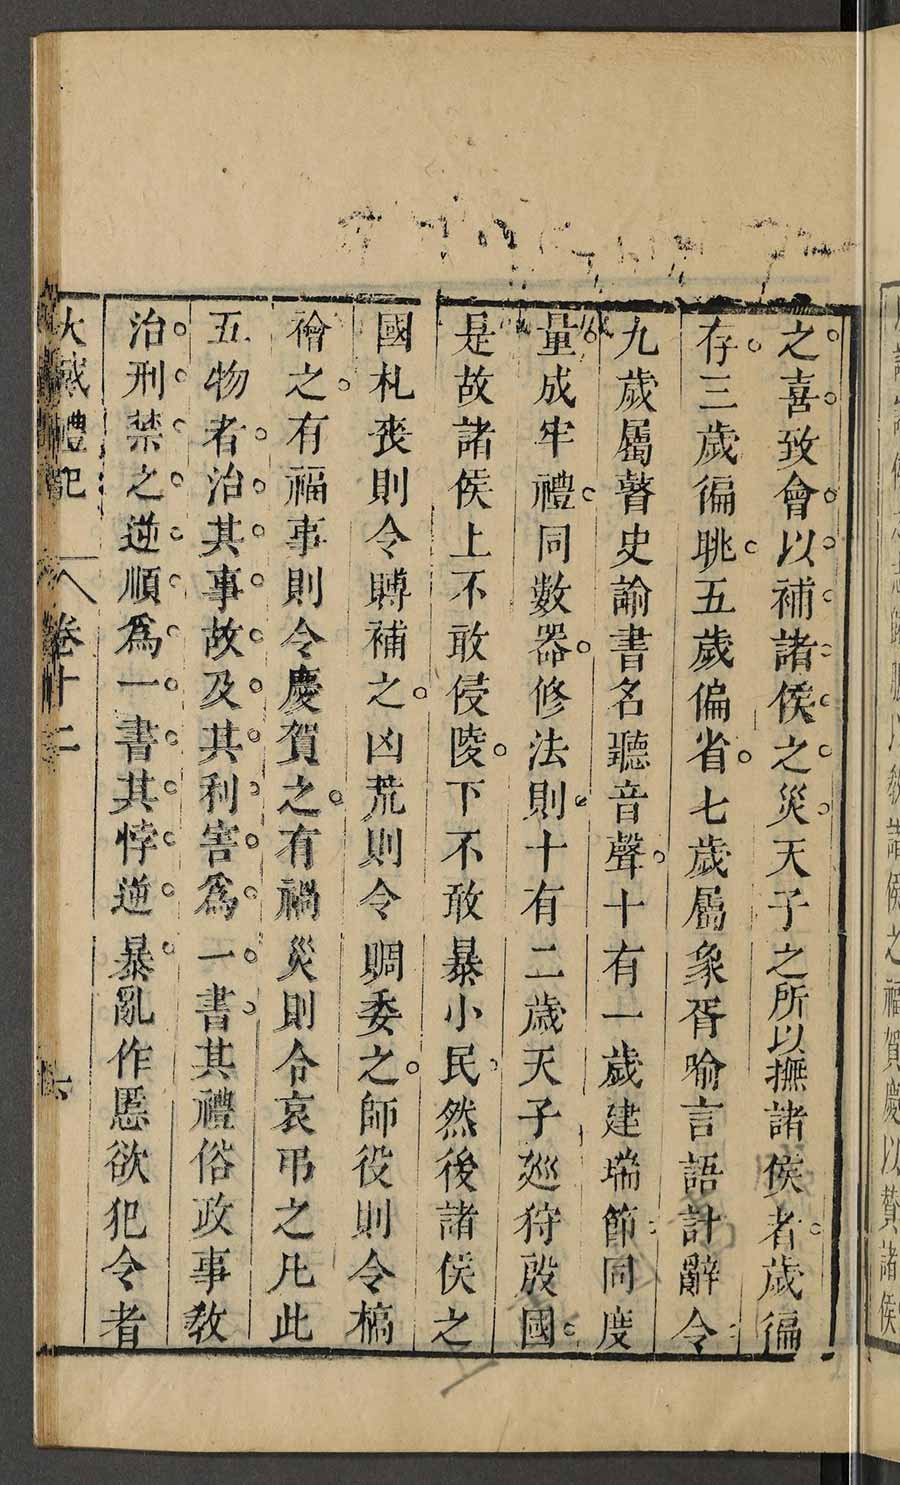 之喜致會以補諸侯之災天子之所以撫諸侯者歲徧
存三歲徧眺五歲偏省七歲屬象胥喻言語計辭令
九歲屬瞽史諭書名聽音聲十有一歲建瑞節同度
量成牢禮同數器修法則十有二歲天子廵狩殷國
是故諸侯上不敢侵陵下不敢暴小民然後諸侯之
國札喪則令賻補之凶荒則令賙委之師役則令槁
禬之有福事則令慶賀之有禍災則令哀弔之凡此
五物者治其事故及其利害爲一書其禮俗政事敎
治刑禁之逆順爲一書其悖逆暴亂作慝欲犯令者
大戴禮記 卷十二 六